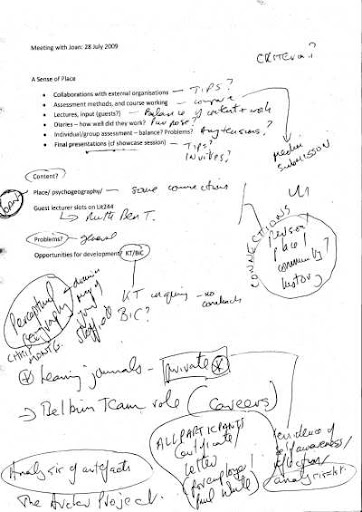 Meeting with Joan: 28 July 2009
CRITERIA?
A Sense of Place
• Collaborations with external organisations — TIPS?
• Assessment methods, and course working — compare
• Lectures, input (guests?) Balance of content + work
• Diaries – how well did they work? Purpose?
• Individual/group assessment – balance? Problems? Any tensions?
• Final presentations (cf showcase session) — TIPS?
INVITEES?
media submission
Content?
Place/ psychogeography/ — some connections
Guest lecturer slots on LX244
↳ Ruth Ben T.
Problems? — general
Opportunities for development? KT/BIC
CONNECTIONS
person
place/
community?
history
Perceptual
geography
KT enquiry — no comebacks
BIC?
Learning journals — private
→ Belbin Team role (careers)
ALL PARTICIPANTS
certificate/
letter
for employer/
Paul Ward
evidence of
self awareness/
reflection/
analysis
Analysis of artefacts
The Archer Project.